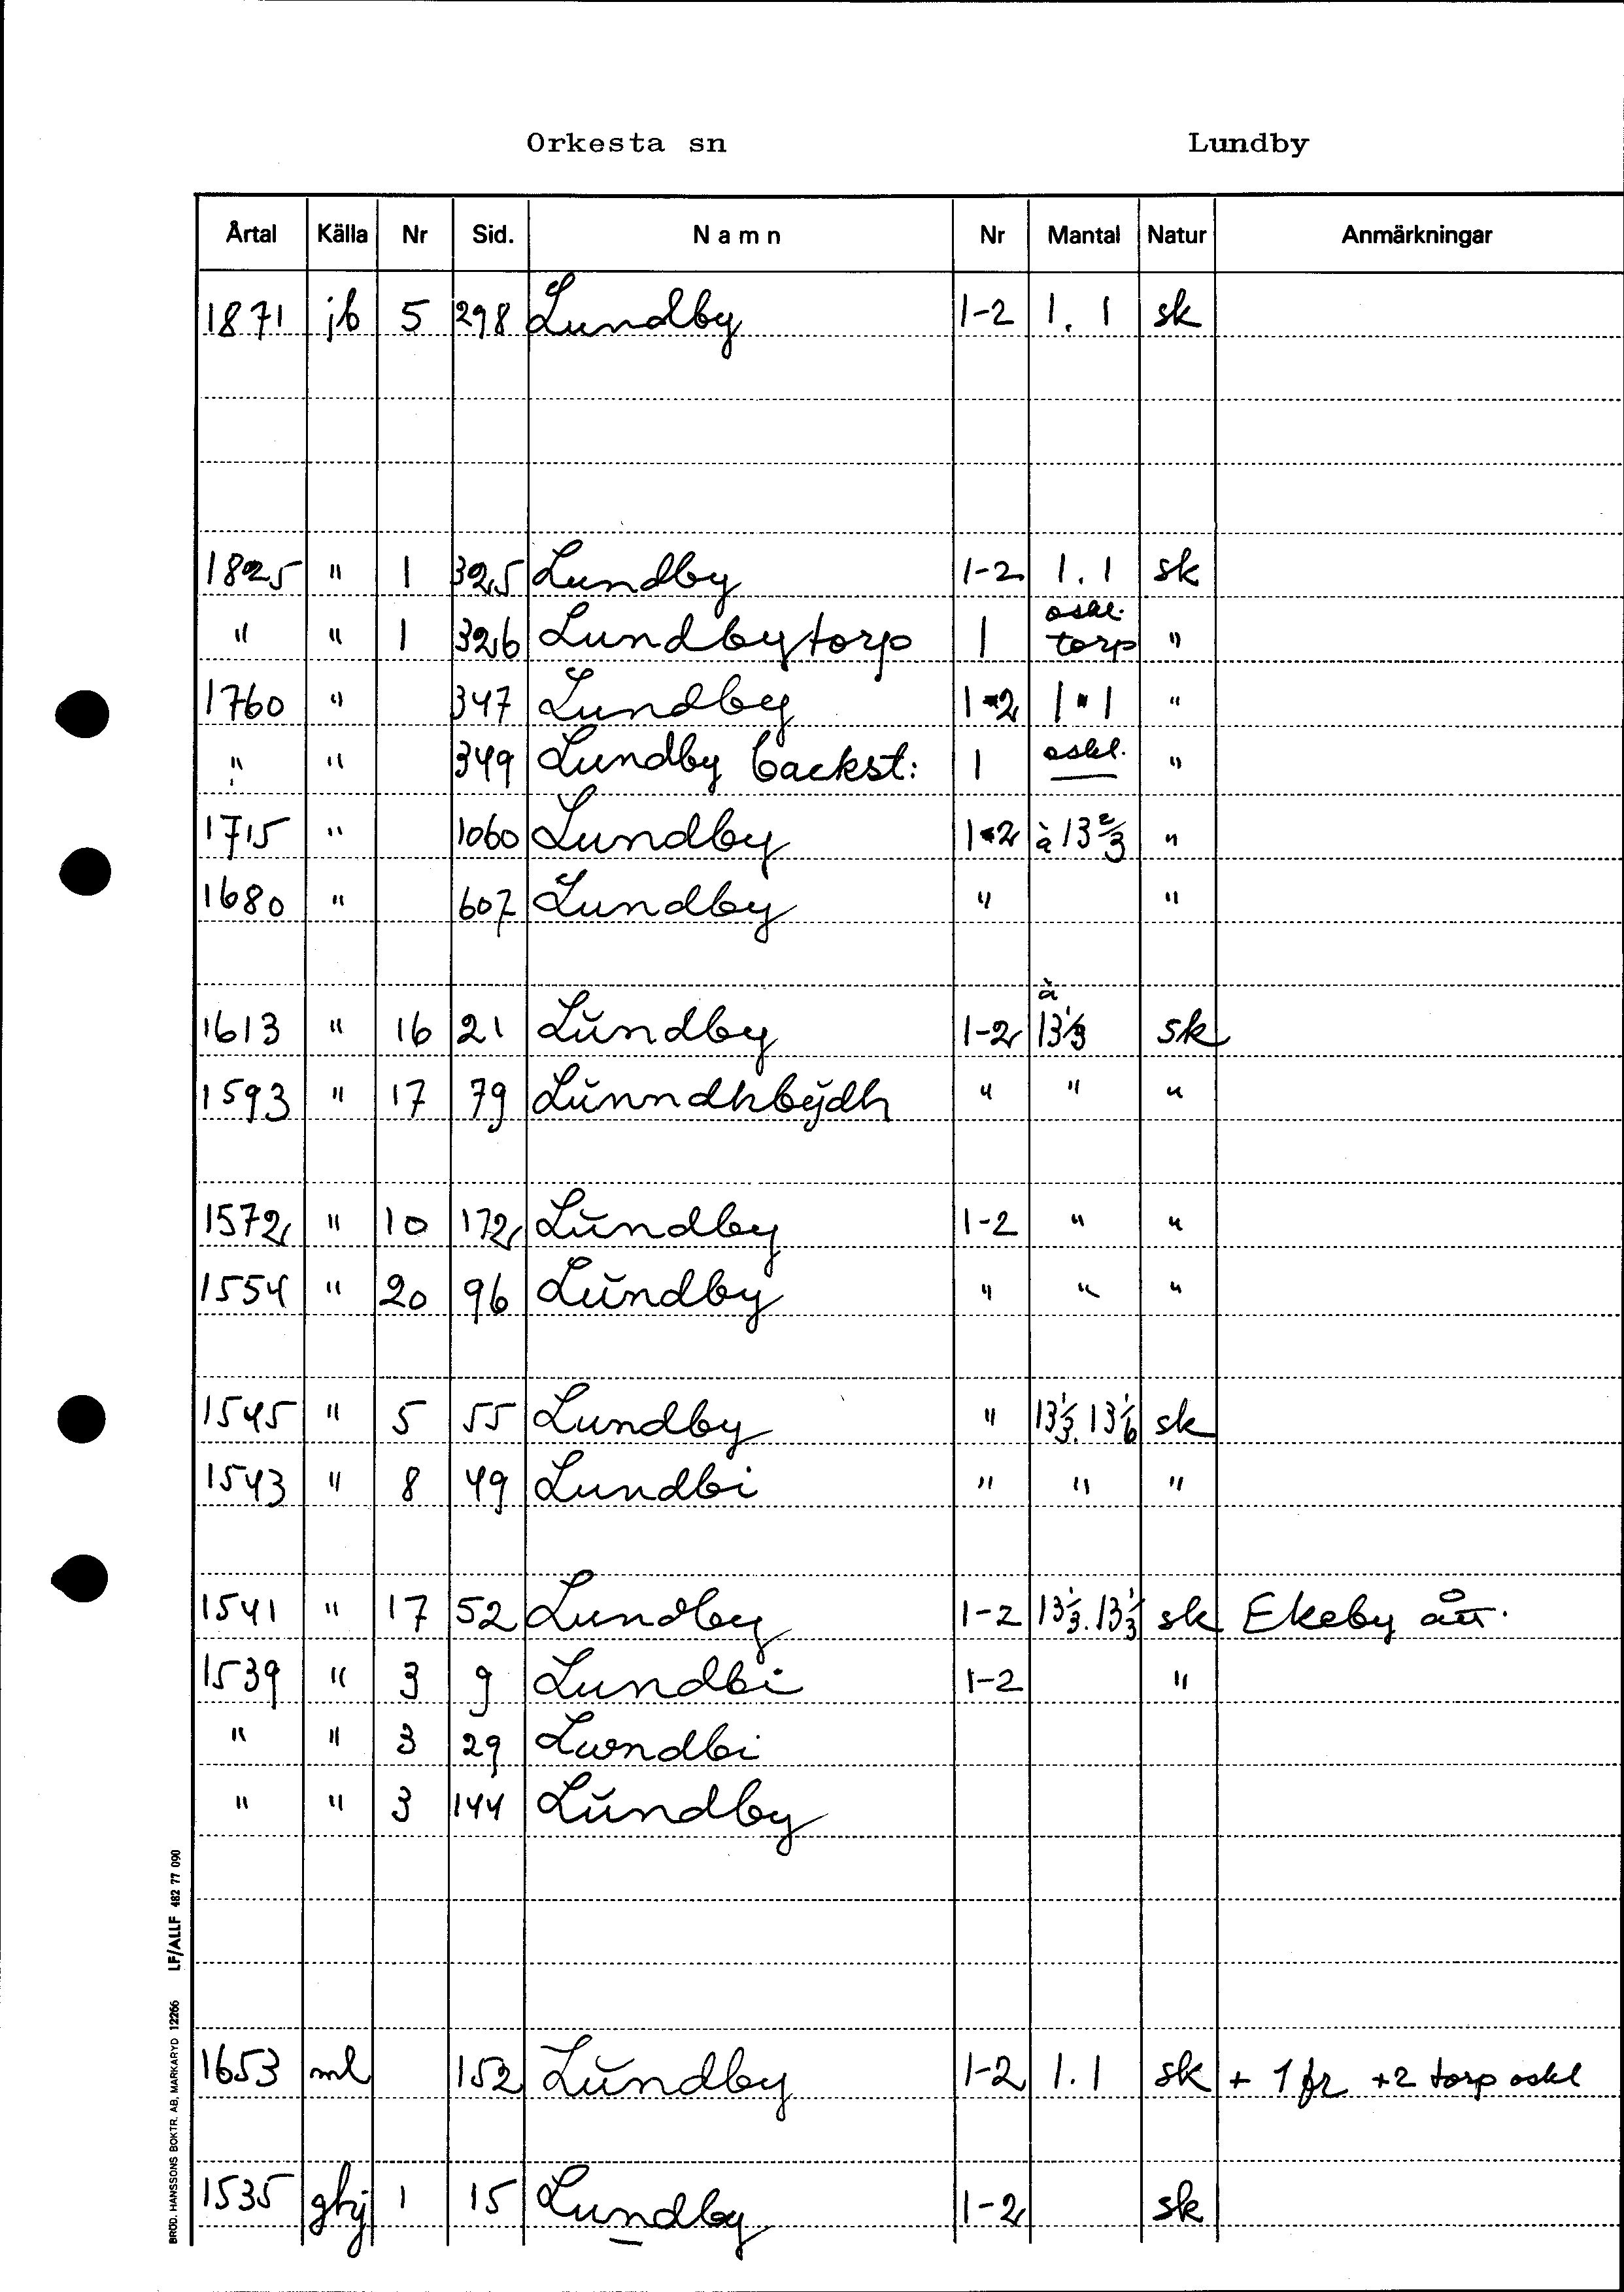 Orkesta sn Lundby
Årtal Källa Nr Sid. Namn Nr Mantal Natur Anmärkningar
1871 jb 5 298 Lundby 1-2 1.1 sk
1825 " 1 325 Lundby 1-2 1.1 sk
" " 1 326 Lundbytorp 1 oskl. torp "
1760 " 347 Lundby 1-2 1.1 "
" " 349 Lundby backst: 1 oskl. "
1715 " 1060 Lundby 1-2 à 13 2/3 "
1680 " 607 Lundby " "
1613 " 16 21 Lŭndby 1-2 à 13 1/3 sk
1593 " 17 79 Lŭnndhbÿdh " " "
1572 " 10 172 Lŭndby 1-2 " "
1554 " 20 96 Lŭndby " " "
1545 " 5 55 Lundby " 13 1/3. 13 1/6 sk
1543 " 8 49 Lundbi " " "
1541 " 17 52 Lundby 1-2 13 1/3. 13 1/3 sk Ekeby ått.
1539 " 3 9 Lundbi 1-2 "
" " 3 29 Lwndbi
" " 3 144 Lŭndby
1653 ml 152 Lŭndby 1-2 1.1 sk + 1 fr +2 torp oskl
1535 ghj 1 15 Lundby 1-2 sk
BRÖD. HANSSONS BOKTR. AB, MARKARYD 12266 LF/ALLF 482 77 090